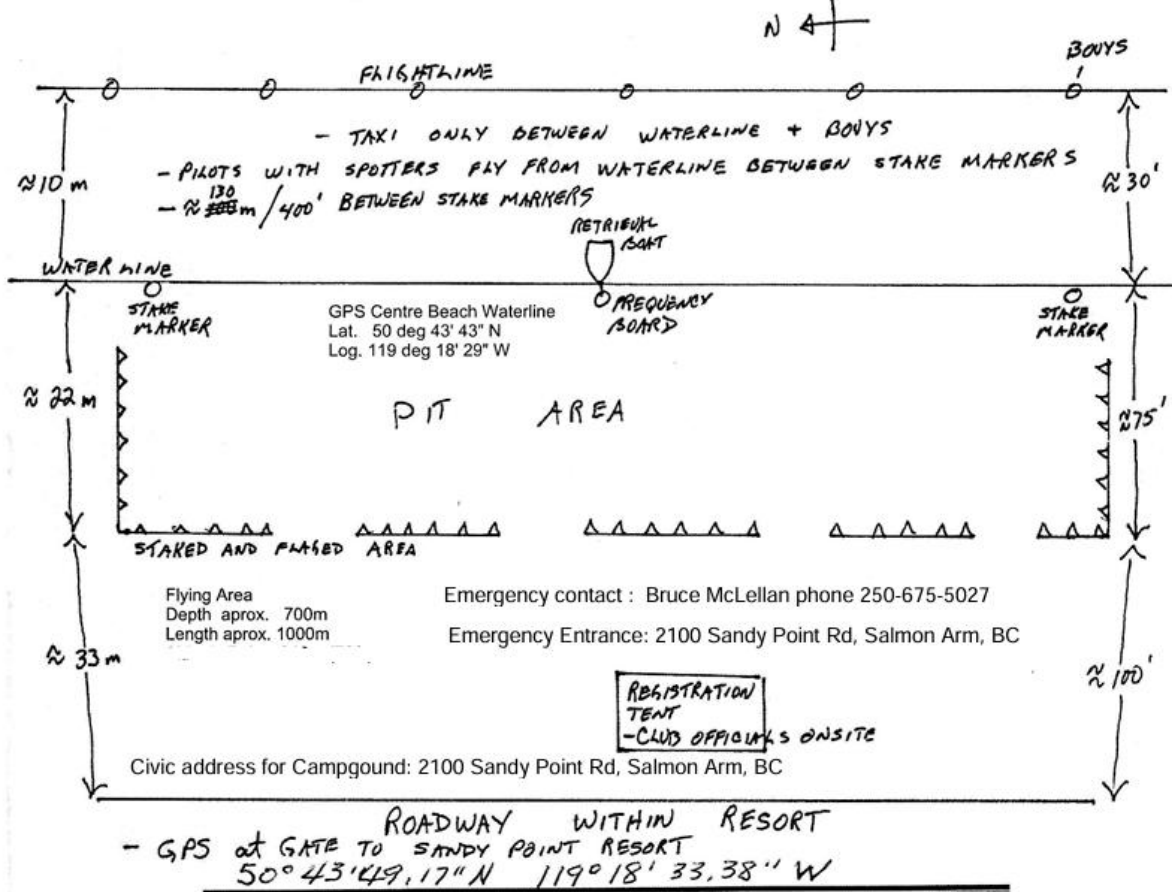 N
BOUYS
FLIGHTLINE
- TAXI ONLY BETWEEN WATERLINE + BOUYS
≈10 m
- PILOTS WITH SPOTTERS FLY FROM WATERLINE BETWEEN STAKE MARKERS
≈30'
- ≈ 130 m/400' BETWEEN STAKE MARKERS
RETRIEVAL
BOAT
WATER LINE
STAKE
MARKER
GPS Centre Beach Waterline
Lat. 50 deg 43' 43" N
Log. 119 deg 18' 29" W
FREQUENCY
BOARD
STAKE
MARKER
≈ 22 m
PIT AREA
≈75'
STAKED AND FLAGED AREA
Flying Area
Depth aprox. 700m
Length aprox. 1000m
Emergency contact : Bruce McLellan phone 250-675-5027
Emergency Entrance: 2100 Sandy Point Rd, Salmon Arm, BC
≈ 33 m
≈ 100'
REGISTRATION
TENT
-CLUB OFFICIALS ONSITE
Civic address for Campgound: 2100 Sandy Point Rd, Salmon Arm, BC
ROADWAY WITHIN RESORT
- GPS at GATE TO SANDY POINT RESORT
50° 43' 49.17" N 119° 18' 33.38" W